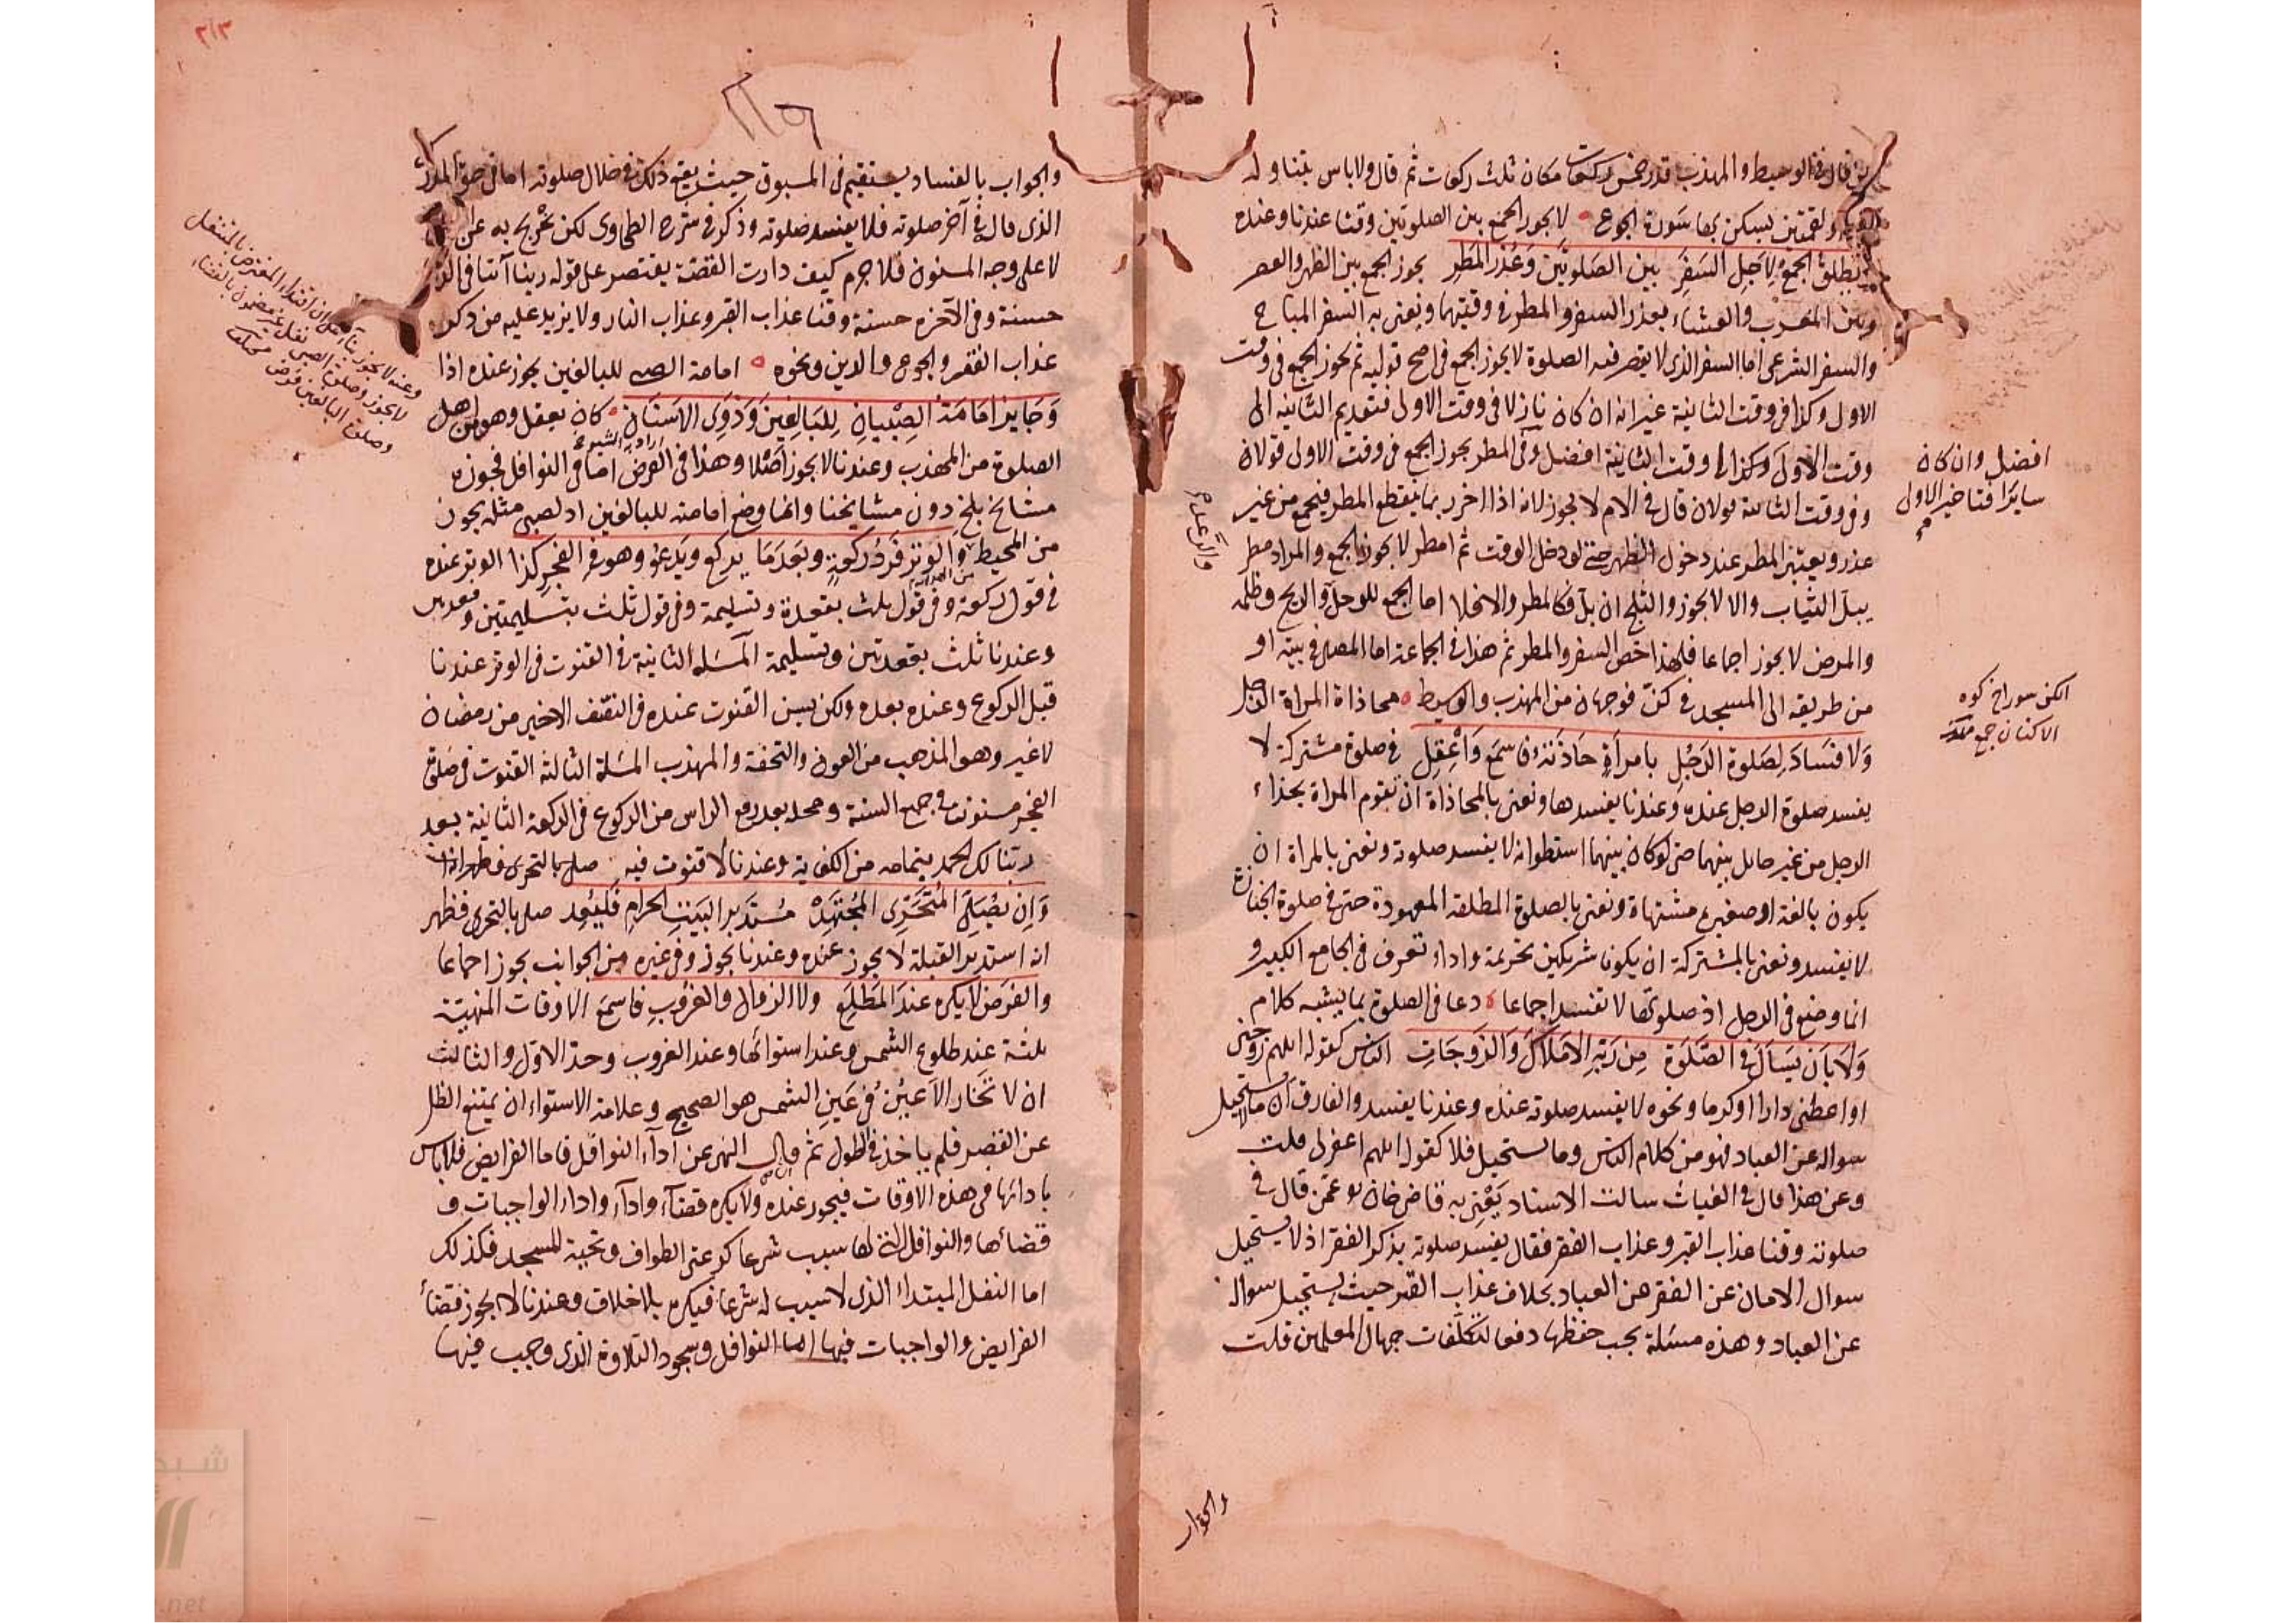 قال في الوسيط والمهذب قدر خمس ركعات مكان ثلث ركعات ثم قال ولا باس بتناوله
ولقمتين يسكن بها سورة الجوع لا يجوز الجمع بين الصلوتين وقتا عندنا وعنده
تطلق الجمع لاجل السفر بين الصلوتين وعذر المطر يجوز الجمع بين الظهر والعصر
وبين المغرب والعشاء بعذر السفر والمطر في وقتيهما ويعنى به السفر المباح
والسفر الشرعى اما السفر الذى لا يقصر فيه الصلوة لا يجوز الجمع في اصح قوليه ثم يجوز الجمع في وقت
الاول وكذا في وقت الثانية غير انه ان كان نازلا في وقت الاولى فتقديم الثانية الى
وقت الاولى وكذا الى وقت الثانية افضل وفي المطر يجوز الجمع في وقت الاولى قولان
افضل وان كان
سايرا فتاخير الاول
وفي وقت الثانية قولان قال في الام لا يجوز لانه اذا اخر ربما ينقطع المطر فيجمع من غير
عذر ويعتبر المطر عند دخول الظهر حتى لو دخل الوقت ثم امطر لا يجوز الجمع والمراد مطر
والرعد
يبل الثياب والا لا يجوز والثلج ان بل فكالمطر والا فلا اما الجمع للوحل والريح وظلمة
والمرض لا يجوز اجماعا فلهذا خص السفر والمطر ثم هذا في الجماعة اما المصلى في بيته او
من طريقه الى المسجد في كن فوجهان من المهذب والوسيط محاذاة المراة الرجل
الكن سوراخ كوه
الاكنان جمع
ولا فساد لصلوة الرجل بامراة حاذته فاسمع واعقل في صلوة مشتركة لا
يفسد صلوة الرجل عنده وعندنا يفسدها ونعنى بالمحاذاة ان تقوم المراة بحذاء
الرجل من غير حايل بينهما حتى لو كان بينهما اسطوانة لا يفسد صلوته ونعنى بالمراة ان
يكون بالغة او صغيرة مشتهاة ونعنى بالصلوة المطلقة المعهودة حتى في صلوة الجنازة
لا يفسد ونعنى بالمشتركة ان يكونا شريكين تحريمة واداء تعرف في الجامع الكبير و
انما وضع في الرجل اذ صلوتها لا تفسد اجماعا دعا في الصلوة بما يشبه كلام
ولا بان يسال في الصلوة من ربه الاملاك والزوجات الناس كقوله اللهم زوجنى
او اعطنى دارا او كرما ونحوه لا يفسد صلوته عنده وعندنا يفسد والفارق ان ما لا يستحيل
سواله عن العباد فهو من كلام الناس وما يستحيل فلا كقوله اللهم اغفر لى قلت
وعن هذا قال في الغياث سالت الاستاد يعنى به قاضى خان عمن قال في
صلوته وقنا عذاب القبر وعذاب الفقر فقال يفسد صلوته بذكر الفقر اذ لا يستحيل
سوال الامان عن الفقر من العباد بخلاف عذاب القبر حيث يستحيل سواله
عن العباد وهذه مسئلة يجب حفظها دفعا لتكلفات جهال المعلمين قلت
والجواب
والجواب بالفساد يستقيم في المسبوق حيث يقع ذلك في خلال صلوته اما في حق المدرك
الذى قال في آخر صلوته فلا يفسد صلوته وذكر في شرح الطحاوى لكن يخرج به عن
لا على وجه المسنون فلا جرم كيف دارت القصة يقتصر على قوله ربنا آتنا في الدنيا
حسنة وفي الآخرة حسنة وقنا عذاب القبر وعذاب النار ولا يزيد عليه من ذكر
عذاب الفقر والجوع والدين ونحوه امامة الصبى للبالغين يجوز عنده اذا
وجايز امامة الصبيان للبالغين وذوى الاسنان كان يعقل وهو من اهل
اراد به الشيوخ
الصلوة من المهذب وعندنا لا يجوز اصلا وهذا في الفرض اما في النوافل فجوزه
مشايخ بلخ دون مشايخنا وانما وضع امامته للبالغين اذ لصبى مثله يجوز
وعنه لا يجوز بناء على ان اقتداء المفترض بالمتنفل
لا يجوز وصلوة الصبى نفل غير مضمون بالقضاء
وصلوة البالغين فرض
من المحيط والوتر فرد ركعة وبعد ما يركع ويدعو وهو في الفجر كذا الوتر عنده
في قول ركعة وفي قول ثلث بقعدة وتسليمة وفي قول ثلث بتسليمتين وقعدتين
وعندنا ثلث بقعدتين وتسليمة المسئلة الثانية في القنوت في الوتر عندنا
قبل الركوع وعنده بعده ولكن يسن القنوت عنده في النصف الاخير من رمضان
لا غير وهو المذهب من العون والتحفة والمهذب المسئلة الثالثة القنوت في صلوة
الفجر مسنون في جميع السنة ومحله بعد رفع الراس من الركوع في الركعة الثانية بعد
ربنا لك الحمد بتمامه من الكفاية وعندنا لا قنوت فيه صلى بالتحرى فظهر انه
وان يصلى المتحرى المجتهد مستدبر البيت الحرام فليعد صلى بالتحرى فظهر
انه استدبر القبلة لا يجوز عنده وعندنا يجوز وفي غيره من الجوانب يجوز اجماعا
والفرض لا يكره عند المطلع ولا الزوال والغروب فاسمع الاوقات المنهية
ثلثة عند طلوع الشمس وعند استوائها وعند الغروب وحد الاول والثالث
ان لا تحار الاعين في عين الشمس هو الصحيح وعلامة الاستواء ان يمتنع الظل
عن القصر فلم ياخذ في الطول ثم قال النهى عن اداء النوافل فاما الفرايض فلا باس
بادائها في هذه الاوقات فيجوز عنده ولا يكره قضاء واداء واداء الواجبات و
قضائها والنوافل التى لها سبب شرعا كركعتى الطواف وتحية المسجد فكذلك
اما النفل المبتداء الذى لا سبب له شرعا فيكره بلا خلاف وعندنا لا يجوز قضاء
الفرايض والواجبات فيها اما النوافل وسجود التلاوة الذى وجب فيها